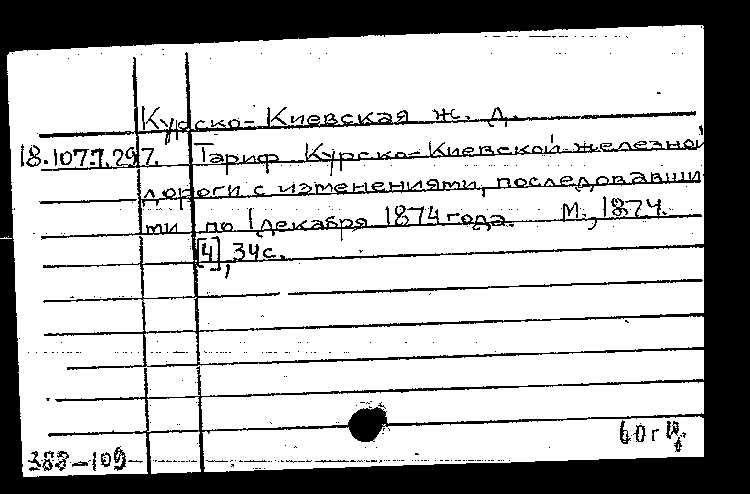 Курско-Киевская ж. д.
18.107.7.297. Тариф Курско-Киевской железной
дороги с изменениями, последовавши
ми по 1 декабря 1874 года. М., 1874.
[4], 34с.
60г
388-109